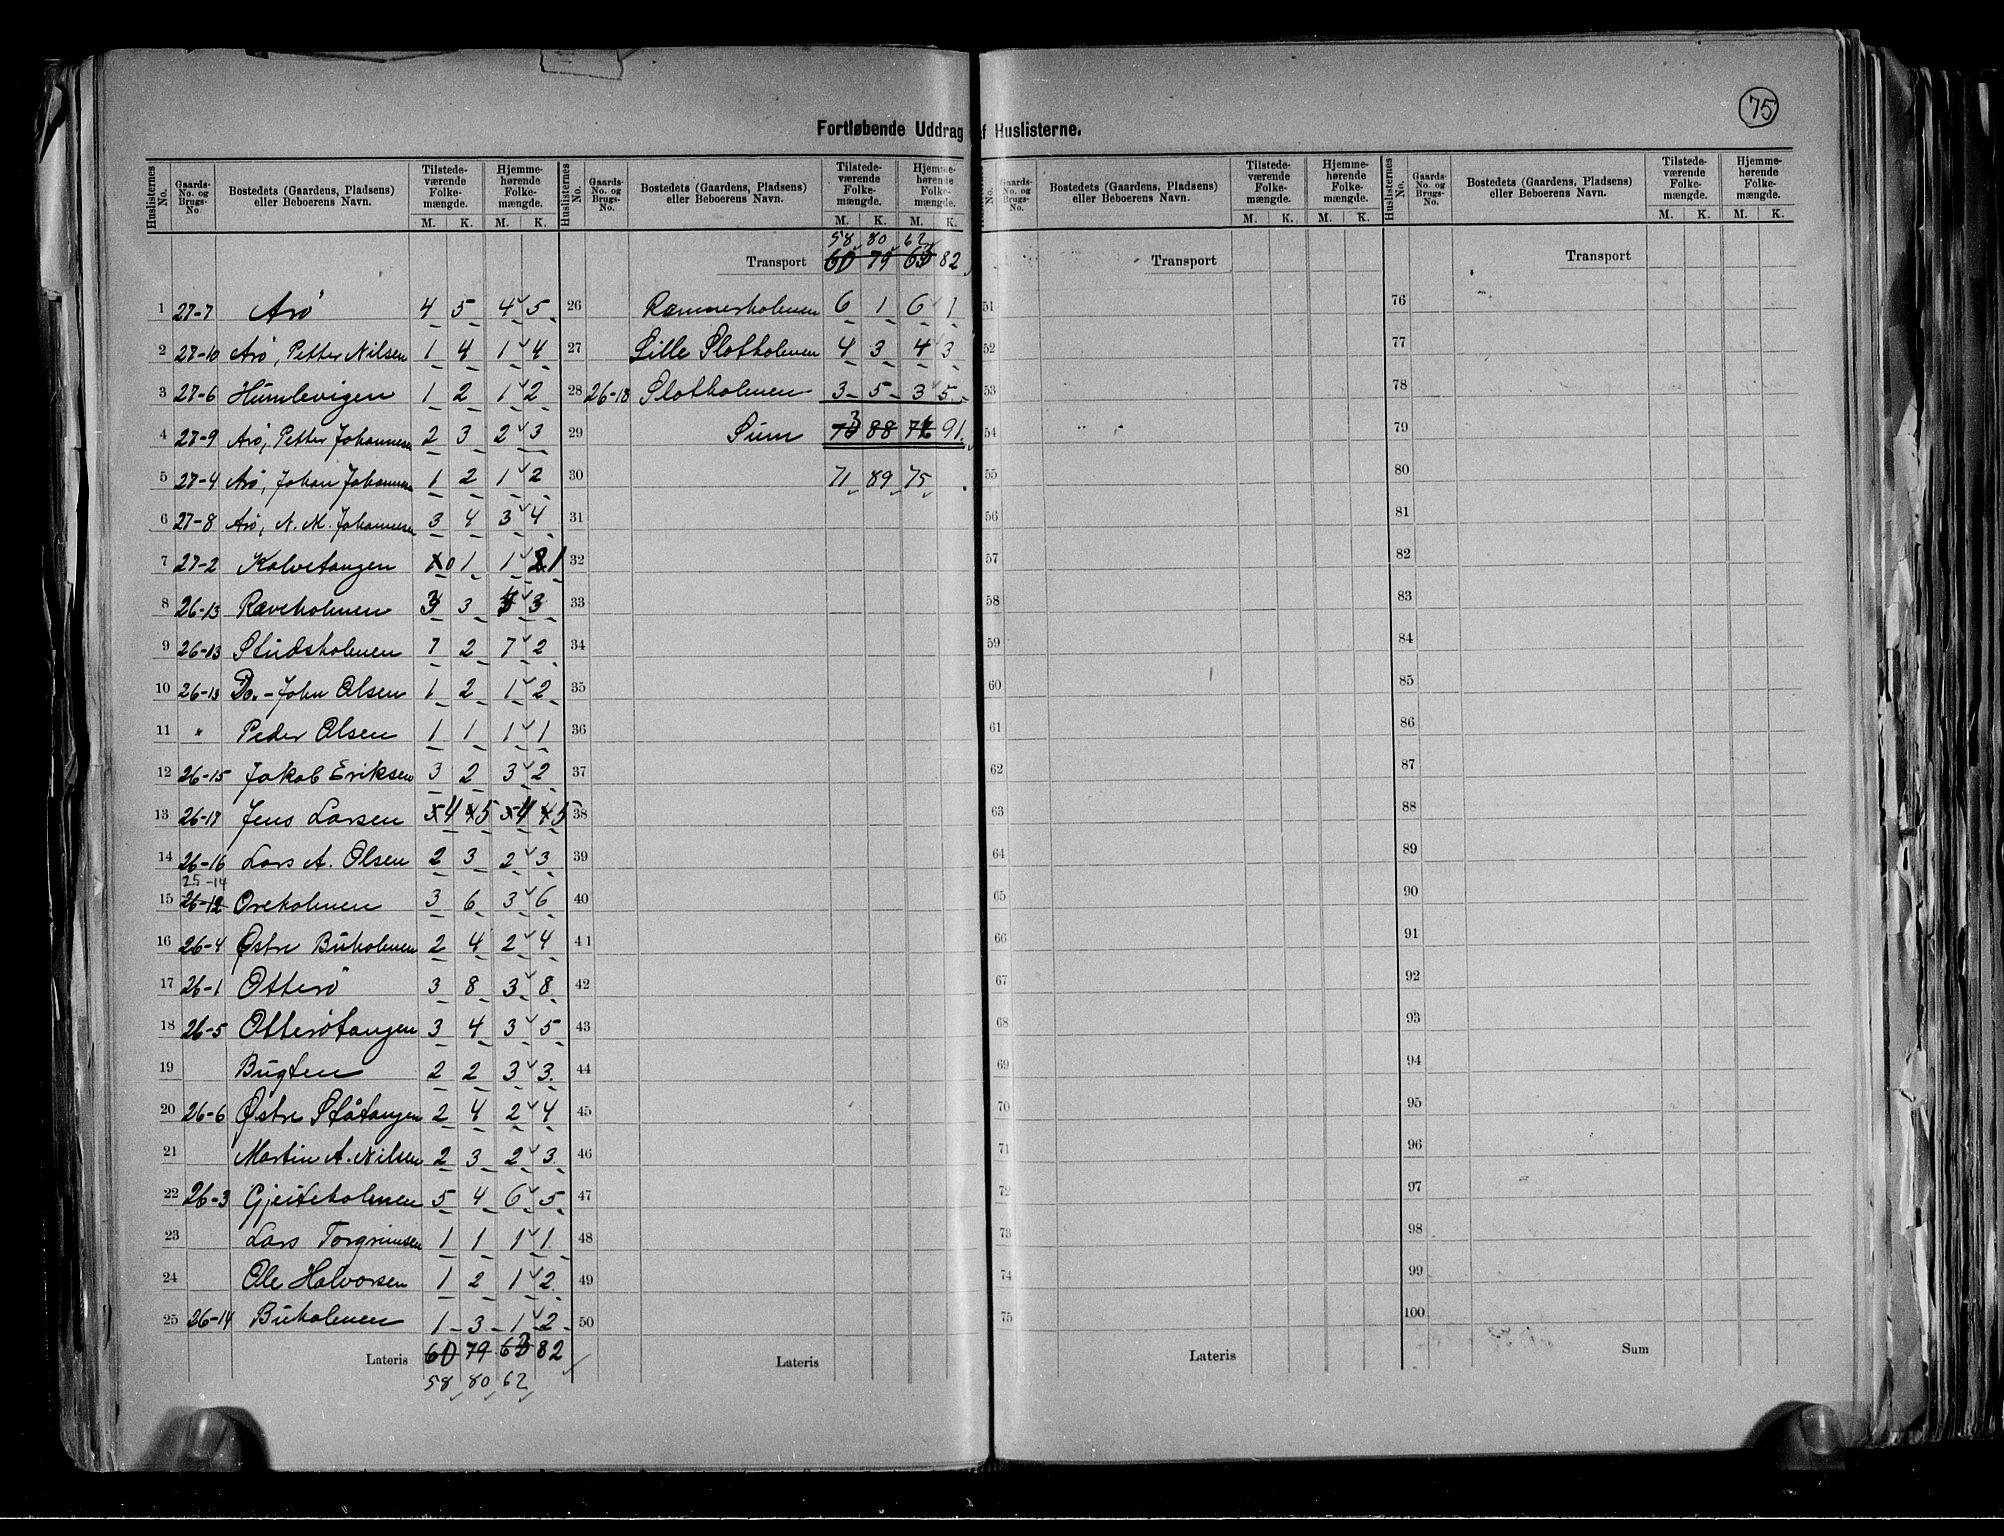 75
Fortløbende Uddrag af Huslisterne.
Huslisternes No. Gaards-No. og Brugs-No. Bostedets (Gaardens, Pladsens) eller Beboerens Navn. Tilstedeværende Folkemængde. M. K. Hjemmehørende Folkemængde. M. K.
1 27-7 Arö 4 5 4 5
2 27-10 Arö, Petter Nilsen 1 4 1 4
3 27-6 Humlevigen 1 2 1 2
4 27-9 Arö, Petter Johannesen 2 3 2 3
5 27-4 Arö, Johan Johannesen 1 2 1 2
6 27-8 Arö, N. M. Johannesen 3 4 3 4
7 27-2 Kalvetangen 0 1 1 1
8 26-13 Ræveholmen 3 3
9 26-13 Studsholmen 7 2 7 2
10 26-13 Do. - John Olsen 1 2 1 2
11 " Peder Olsen 1 1 1 1
12 26-15 Jakob Eriksen 3 2 3 2
13 26-17 Jens Larsen 4 5 4 5
14 26-16 Lars A. Olsen 2 3 2 3
25-14
15 26-12 Oreholmen 3 6 3 6
16 26-4 Østre Buholmen 2 4 2 4
17 26-1 Otterö 3 8 3 8
18 26-5 Otterötangen 3 4 3 5
19 Bugten 2 2 3 3
20 26-6 Østre Ståtangen 2 4 2 4
21 Martin A. Nilsen 2 3 2 3
22 26-3 Gjeiteholmen 5 4 6 5
23 Lars Torgrimsen 1 1 1 1
24 Ole Halvorsen 1 2 1 2
25 26-14 Buholmen 1 3 1 2
Lateris 60 79 63 82
58 80 62
Huslisternes No. Gaards-No. og Brugs-No. Bostedets (Gaardens, Pladsens) eller Beboerens Navn. Tilstedeværende Folkemængde. M. K. Hjemmehørende Folkemængde. M. K.
58 80 62
Transport 60 79 63 82
26 Ræmmerholmen 6 1 6 1
27 Lille Slotholmen 4 3 4 3
28 26-18 Slotholmen 3 5 3 5
29 Sum 73 88 76 91
30 71 89 75
31
32
33
34
35
36
37
38
39
40
41
42
43
44
45
46
47
48
49
50
Lateris
No. Gaards-No. og Brugs-No. Bostedets (Gaardens, Pladsens) eller Beboerens Navn. Tilstedeværende Folkemængde. M. K. Hjemmehørende Folkemængde. M. K.
Transport
51
52
53
54
55
56
57
58
59
60
61
62
63
64
65
66
67
68
69
70
71
72
73
74
75
Lateris
Huslisternes No. Gaards-No. og Brugs-No. Bostedets (Gaardens, Pladsens) eller Beboerens Navn. Tilstedeværende Folkemængde. M. K. Hjemmehørende Folkemængde. M. K.
Transport
76
77
78
79
80
81
82
83
84
85
86
87
88
89
90
91
92
93
94
95
96
97
98
99
100
Sum